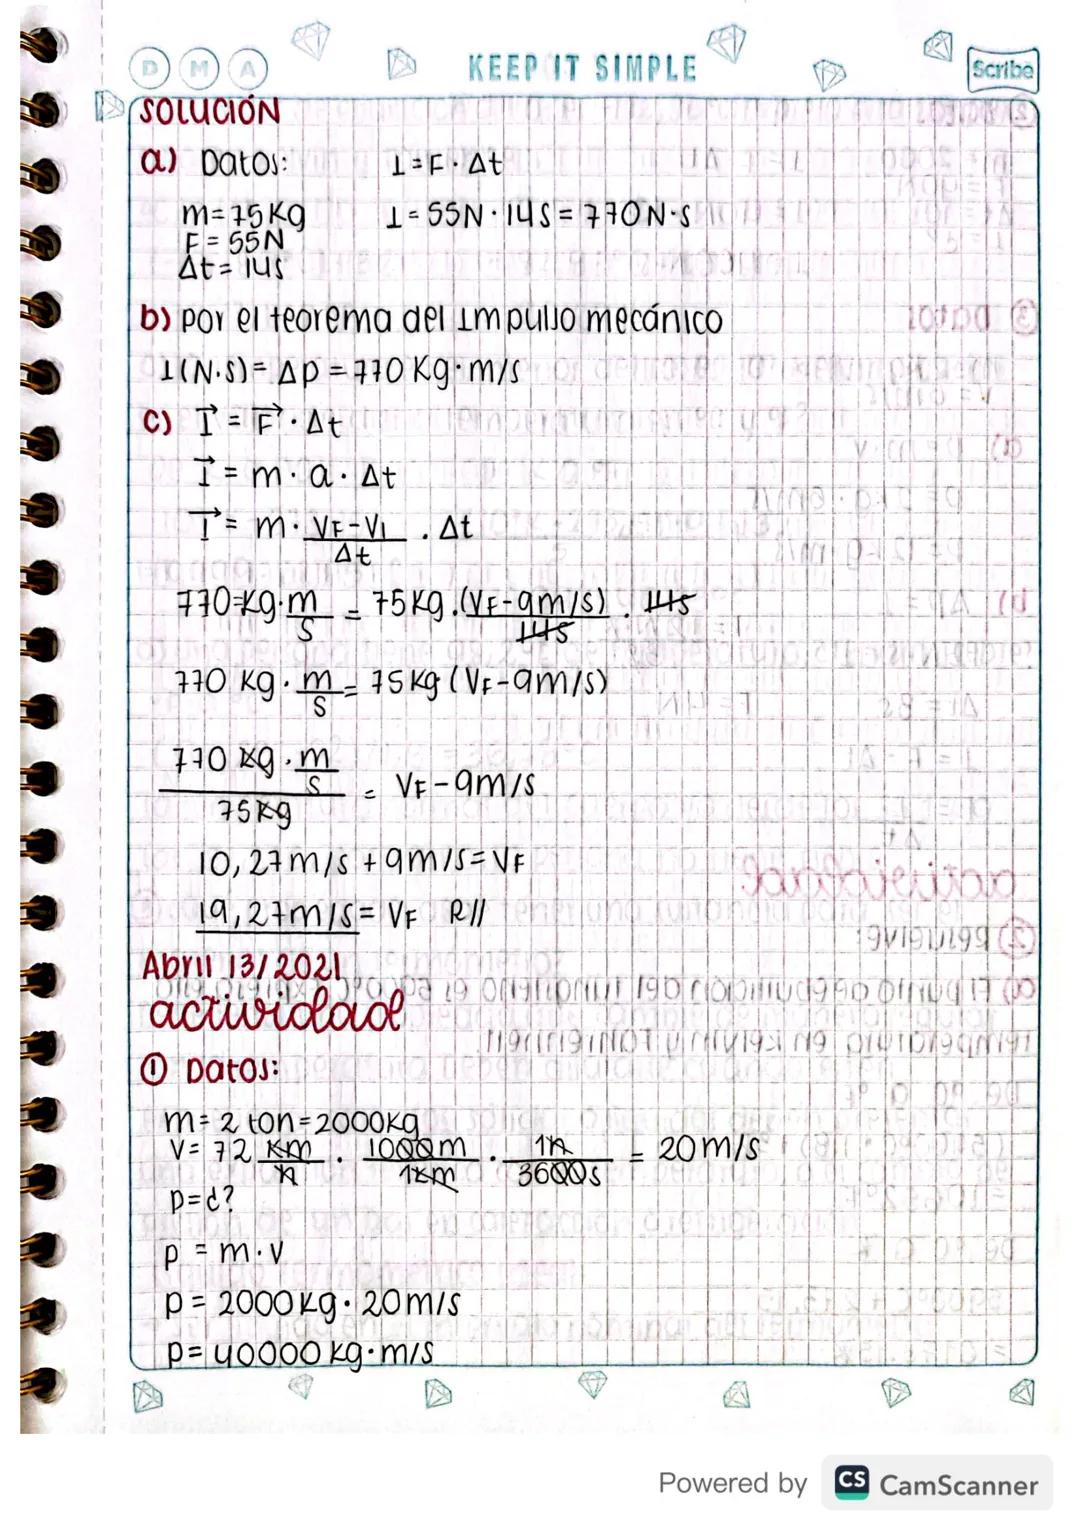 D M A
KEEP IT SIMPLE
Scribe
SOLUCIÓN
a) Datos: I = F · Δt
m = 75 Kg I = 55N · 14s = 770 N·s
F = 55N
Δt = 14s
b) por el teorema del Impulso mecánico
I(N·s) = Δp = 770 Kg·m/s
c) I⃗ = F⃗ · Δt
I⃗ = m · a · Δt
I⃗ = m · (VF - VI)/Δt · Δt
770 Kg · m/s = 75 Kg · (VF - 9m/s)/14s · 14s
770 Kg · m/s = 75 Kg (VF - 9m/s)
(770 Kg · m/s)/75 Kg = VF - 9m/s
10,27 m/s + 9m/s = VF
19,27 m/s = VF R//
Abril 13/2021
actividad
① Datos:
m = 2 ton = 2000Kg
V = 72 Km/h · 1000m/1km · 1h/3600s = 20 m/s
p = ¿?
p = m · v
p = 2000 kg · 20 m/s
p = 40000 kg · m/s
Powered by CS CamScanner